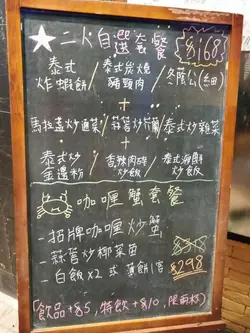 ★二人自選套餐 $168
泰式炸蝦餅 / 泰式炭燒豬頸肉 / 冬蔭公(細)
+
馬拉盞炒通菜 / 蒜蓉炒芥蘭 / 泰式炒雜菜
+
泰式炒金邊粉 / 香辣肉碎炒飯 / 泰式海鮮炒飯
咖喱蟹套餐
-招牌咖喱炒蟹
-蒜蓉炒椰菜苗
-白飯x2 或 薄餅1客
$298
(飲品+$5, 特飲+$10, 限兩杯)